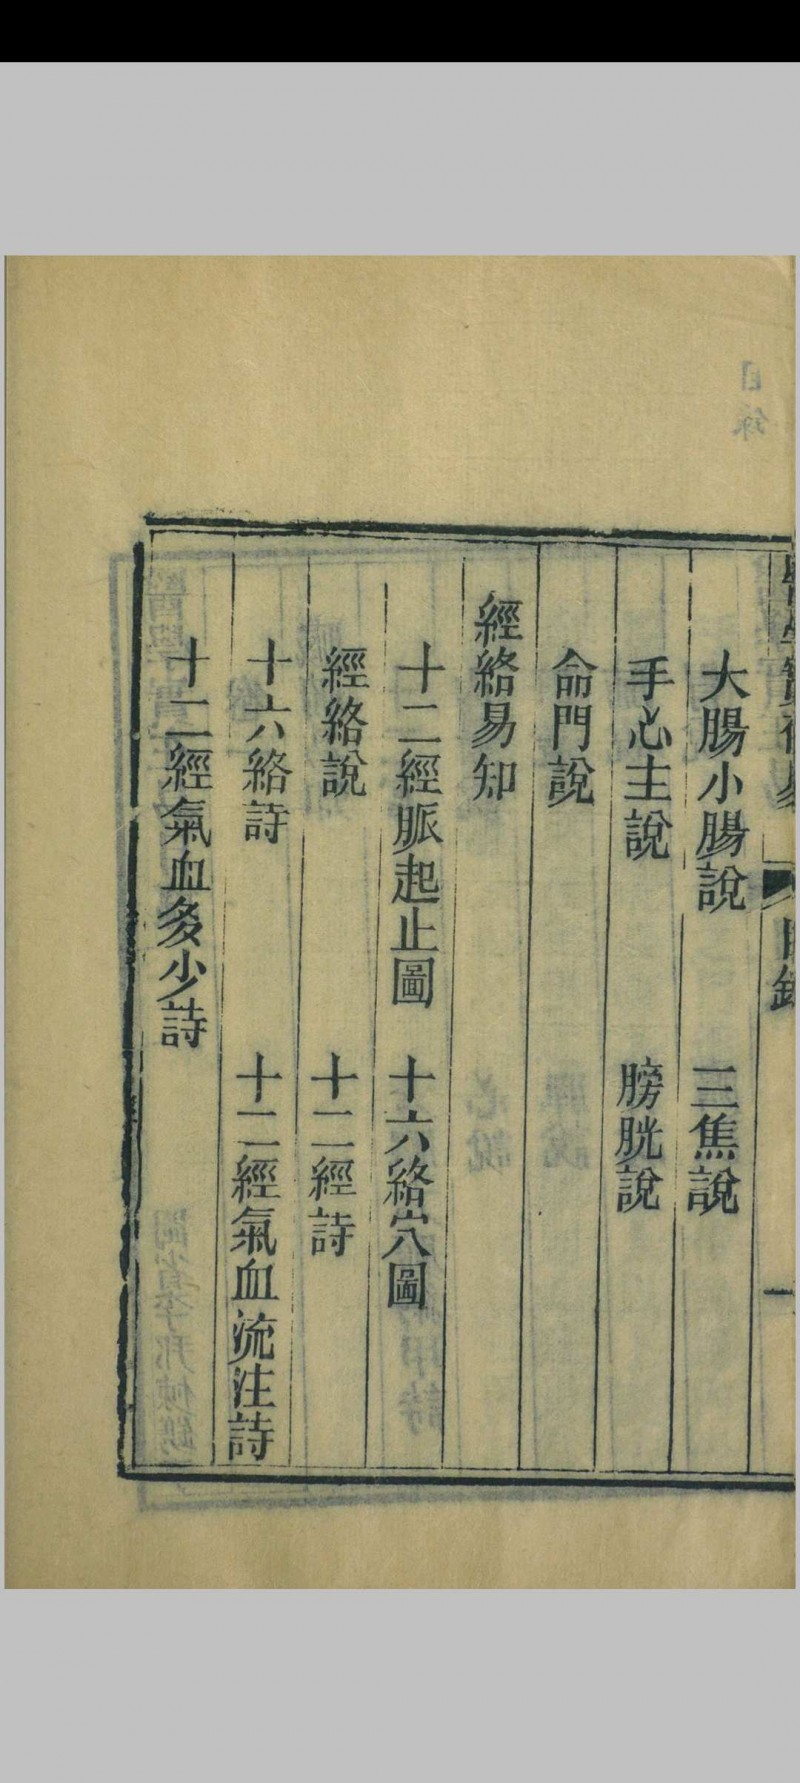 目錄
大腸小腸說 三焦說
手心主說 膀胱說
命門說
經絡易知
十二經脈起止圖 十六絡穴圖
經絡說 十二經詩
十六絡詩 十二經氣血流注詩
十二經氣血多少詩